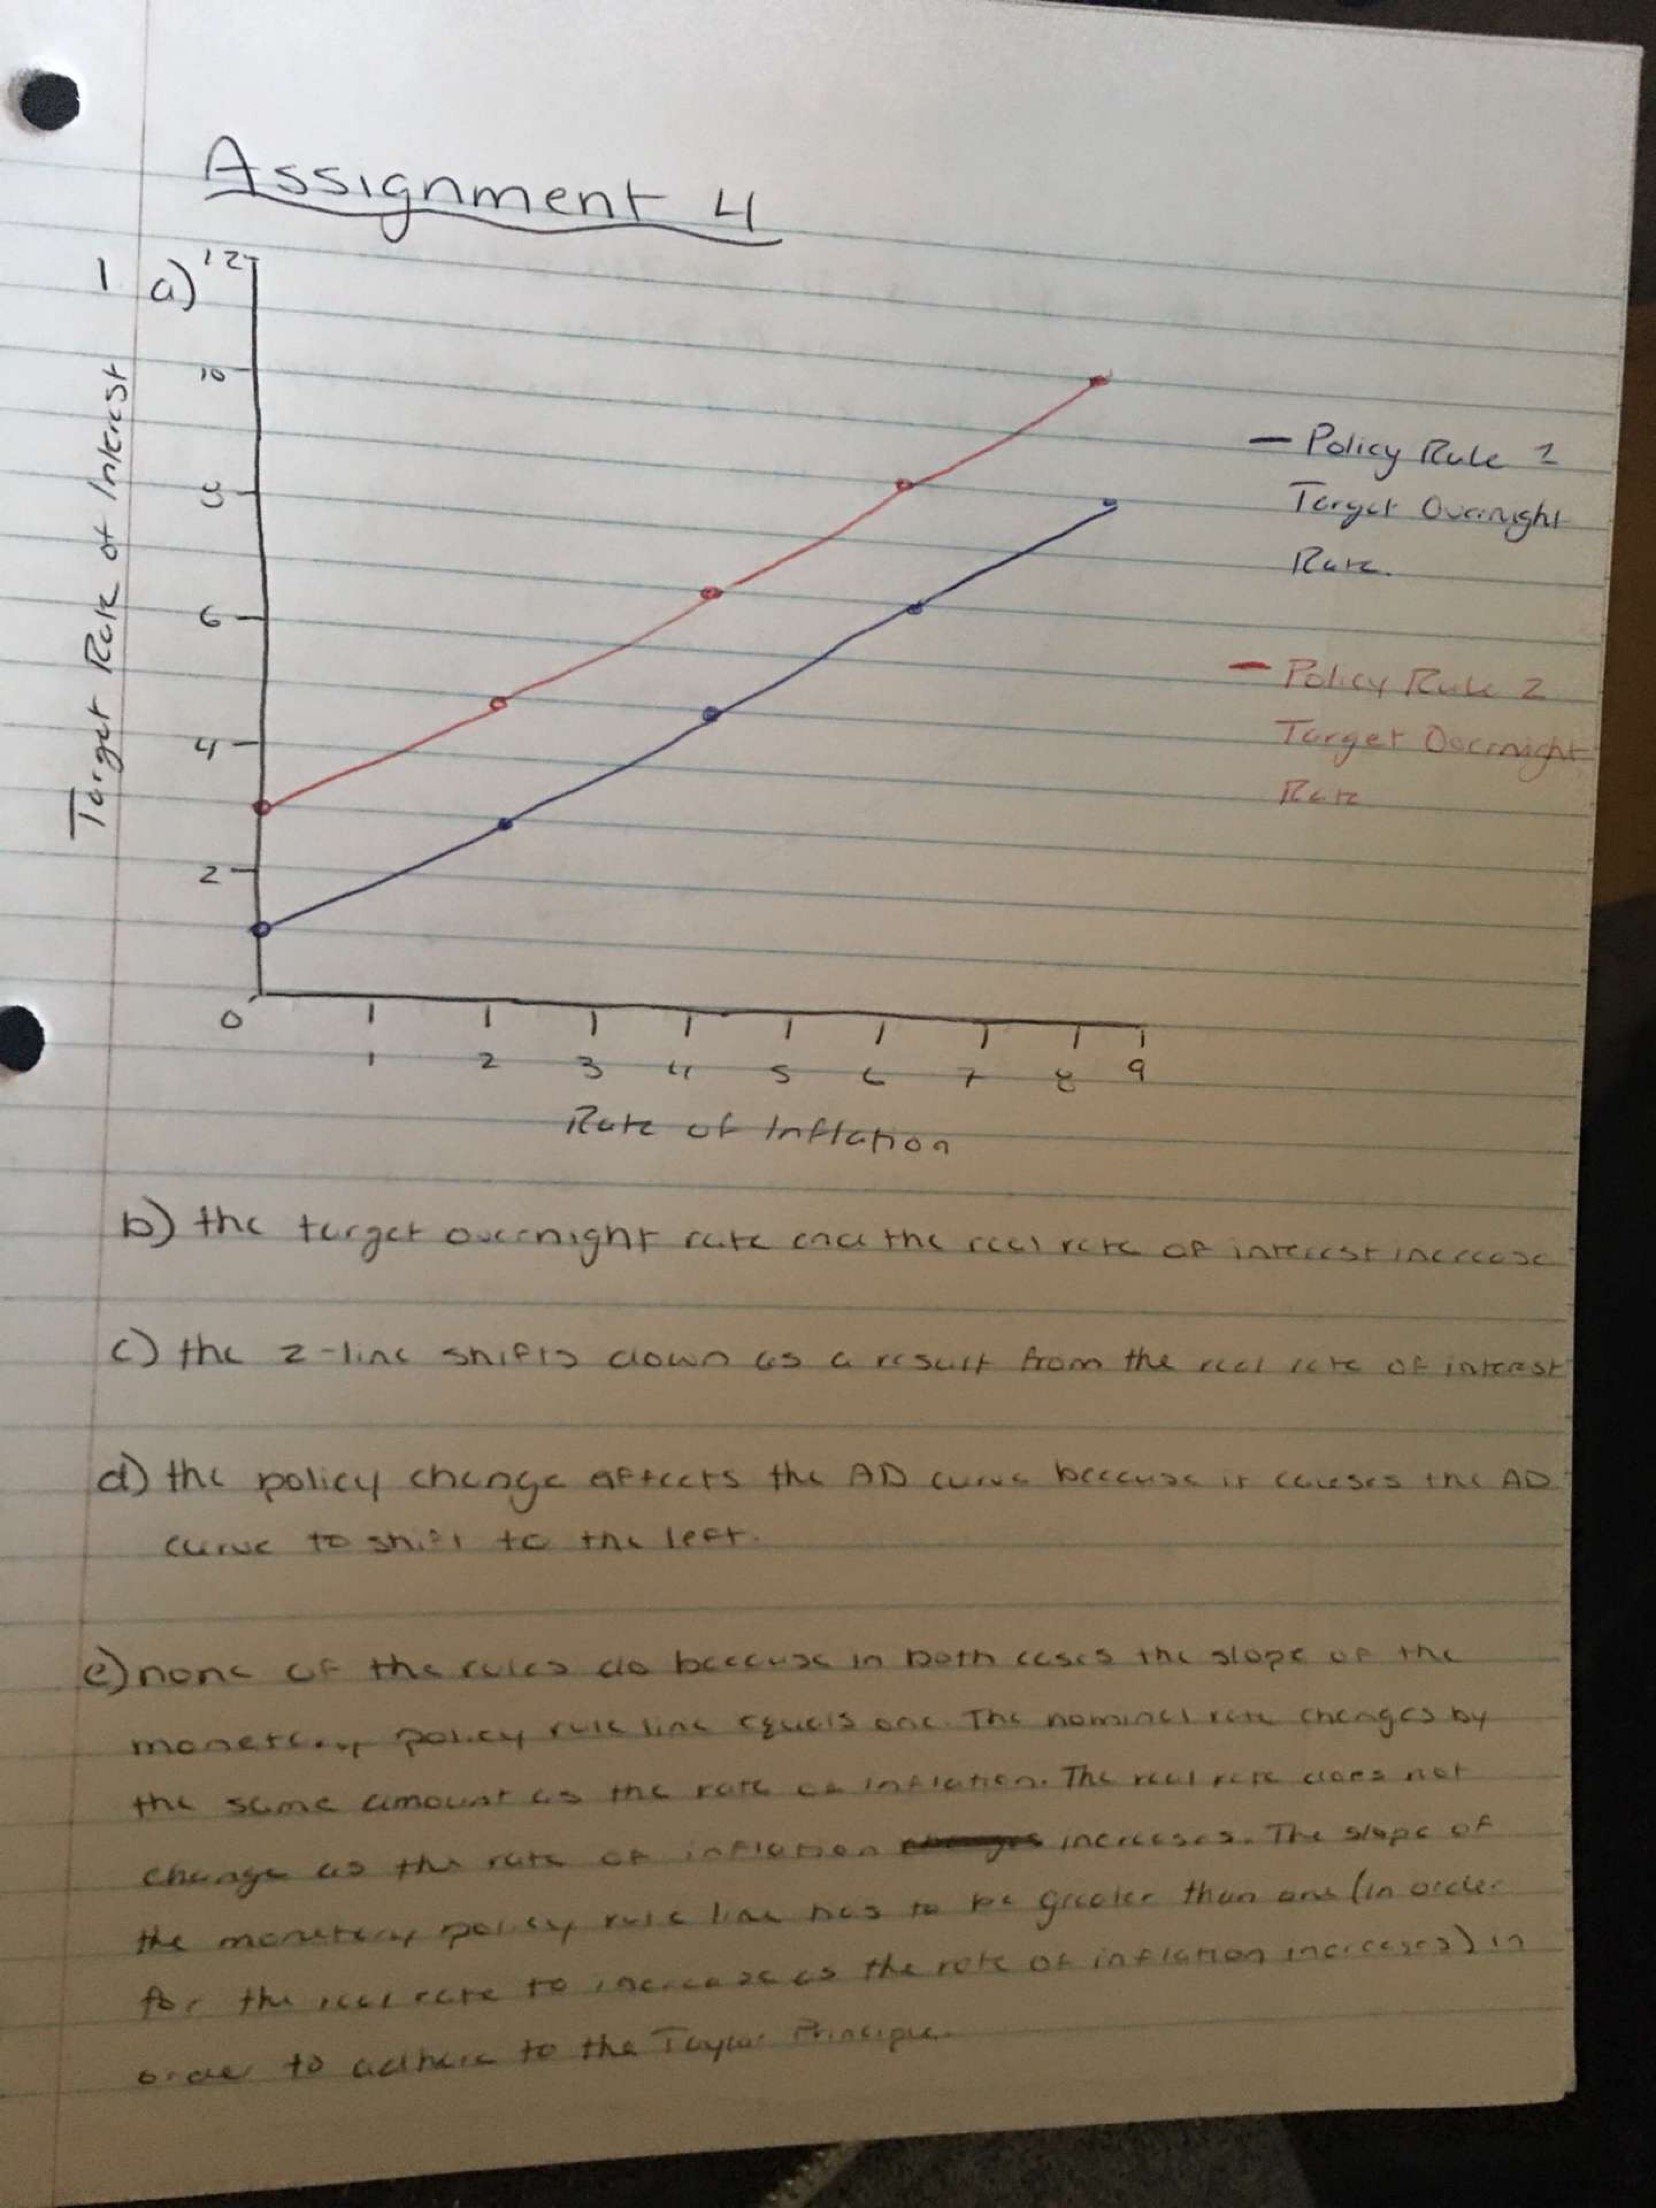 Assignment 4
1 a)
12
10
8
6
4
2
0
Target Rate of Interest
1 2 3 4 5 6 7 8 9
Rate of Inflation
— Policy Rule 1
Target Overnight
Rate.
— Policy Rule 2
Target Overnight
Rate
b) the target overnight rate and the real rate of interest increase
c) the z-line shifts down as a result from the real rate of interest
d) the policy change affects the AD curve because it causes the AD
curve to shift to the left.
e) none of the rules do because in both cases the slope of the
monetary policy rule line equals one. The nominal rate changes by
the same amount as the rate of inflation. The real rate does not
change as the rate of inflation increases. The slope of
the monetary policy rule line has to be greater than one (in order
for the real rate to increase as the rate of inflation increases) in
order to adhere to the Taylor Principle.